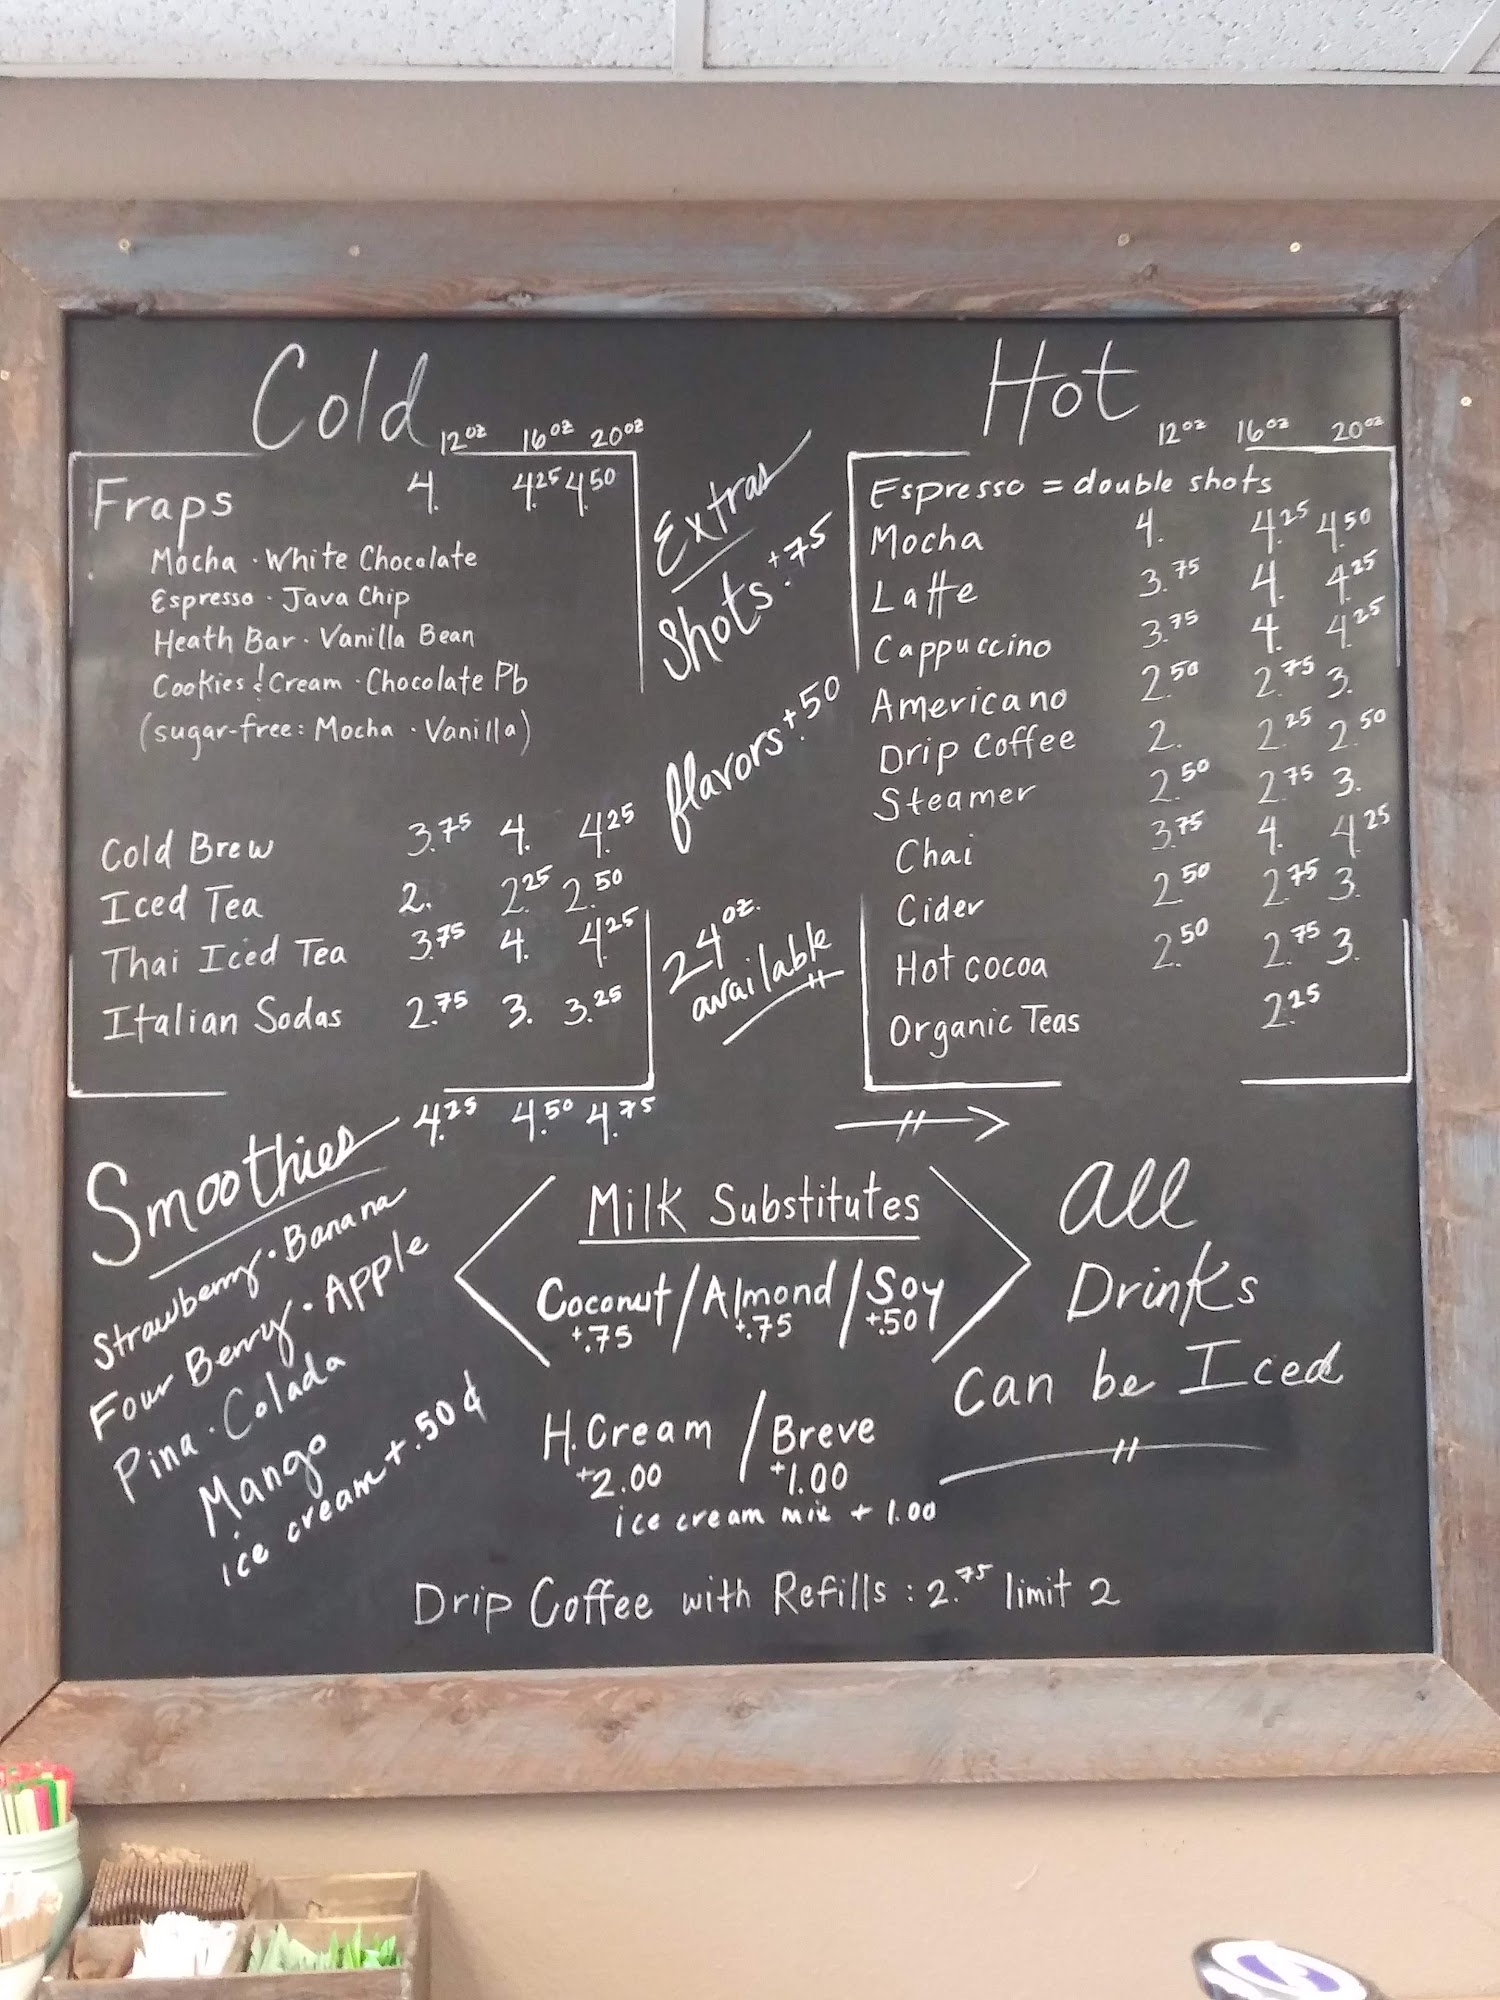 Cold
12oz 16oz 20oz
Fraps 4. 4.25 4.50
Mocha · White Chocolate
Espresso · Java Chip
Heath Bar · Vanilla Bean
Cookies & Cream · Chocolate Pb
(sugar-free: Mocha · Vanilla)
Cold Brew 3.75 4. 4.25
Iced Tea 2. 2.25 2.50
Thai Iced Tea 3.75 4. 4.25
Italian Sodas 2.75 3. 3.25
Extras
Shots +.75
flavors +.50
24oz.
available
Hot
12oz 16oz 20oz
Espresso = double shots
Mocha 4. 4.25 4.50
Latte 3.75 4. 4.25
Cappuccino 3.75 4. 4.25
Americano 2.50 2.75 3.
Drip Coffee 2. 2.25 2.50
Steamer 2.50 2.75 3.
Chai 3.75 4. 4.25
Cider 2.50 2.75 3.
Hot cocoa 2.50 2.75 3.
Organic Teas 2.25
Smoothies 4.25 4.50 4.75
Strawberry · Banana
Four Berry · Apple
Pina · Colada
Mango
ice cream +.50¢
Milk Substitutes
Coconut / Almond / Soy
+.75 +.75 +.50
H. Cream / Breve
+2.00 +1.00
ice cream mix + 1.00
All
Drinks
can be Iced
Drip Coffee with Refills : 2.75 limit 2